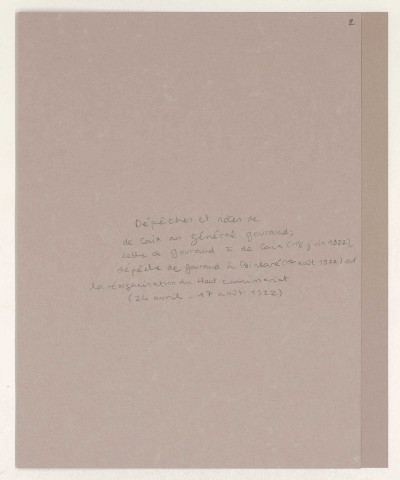 2
Dépêches et notes de
de Caix au général Gouraud ;
lettre de Gouraud à de Caix (18 juin 1922),
dépêche de Gouraud à Poincaré ( août 1922) sur
la réorganisation du Haut commissariat
(24 avril - 17 août 1922)